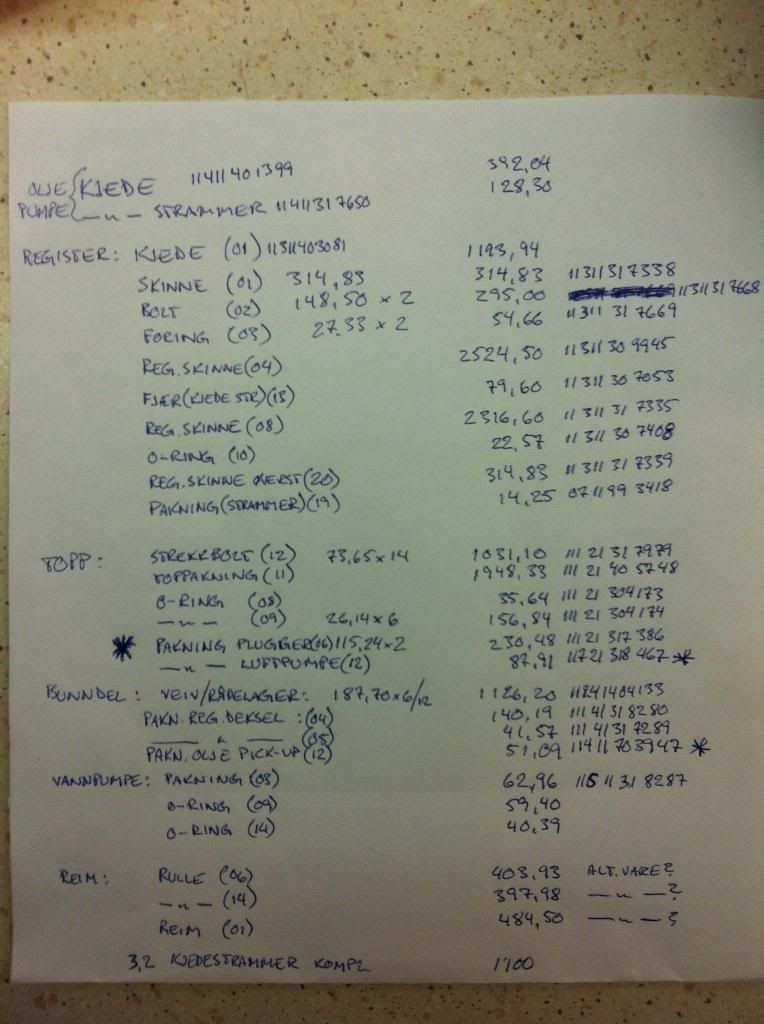 OLJE { KJEDE 11411401399 392,04
PUMPE —"— STRAMMER 11411317650 128,30
REGISTER: KJEDE (01) 11311403081 1193,94
SKINNE (01) 314,83 314,83 11311317338
BOLT (02) 148,50 x 2 295,00 11311317668
FORING (03) 27.33 x 2 54,66 11311 31 7669
REG. SKINNE (04) 2524,50 11311 30 9945
FJÆR (KJEDE STR) (13) 79,60 11 311 30 7053
REG. SKINNE (08) 2316,60 11 311 31 7335
O-RING (10) 22,57 11 311 30 7408
REG. SKINNE ØVERST (20) 314,83 11 311 31 7339
PAKNING (STRAMMER) (19) 14,25 07 1199 3418
TOPP: STREKKBOLT (12) 73,65 x 14 1031,10 111 21 31 7979
TOPPAKNING (11) 1948,33 111 21 40 5748
O-RING (08) 35,64 111 21 304173
—"— (09) 26,14 x 6 156,84 111 21 304174
* PAKNING PLUGGER (06) 115,24 x 2 230,48 111 21 317 386
—"— LUFTPUMPE (12) 87,91 117 21 318 467 *
BUNNDEL: VEIV/RÅDELAGER: 187,70 x 6/12 1126,20 11241404133
PAKN. REG. DEKSEL: (04) 140,19 111 41 31 8280
—"— (05) 41,57 111 41 31 7289
PAKN. OLJE PICK-UP (12) 51,09 11411 703947 *
VANNPUMPE: PAKNING (03) 62,96 115 11 31 8287
O-RING (09) 59,40
O-RING (14) 40,39
REIM: RULLE (06) 403,93 ALT. VARE?
—"— (14) 397,98 —"— ?
REIM (01) 484,50 —"— ?
3,2 KJEDESTRAMMER KOMPL 1'100